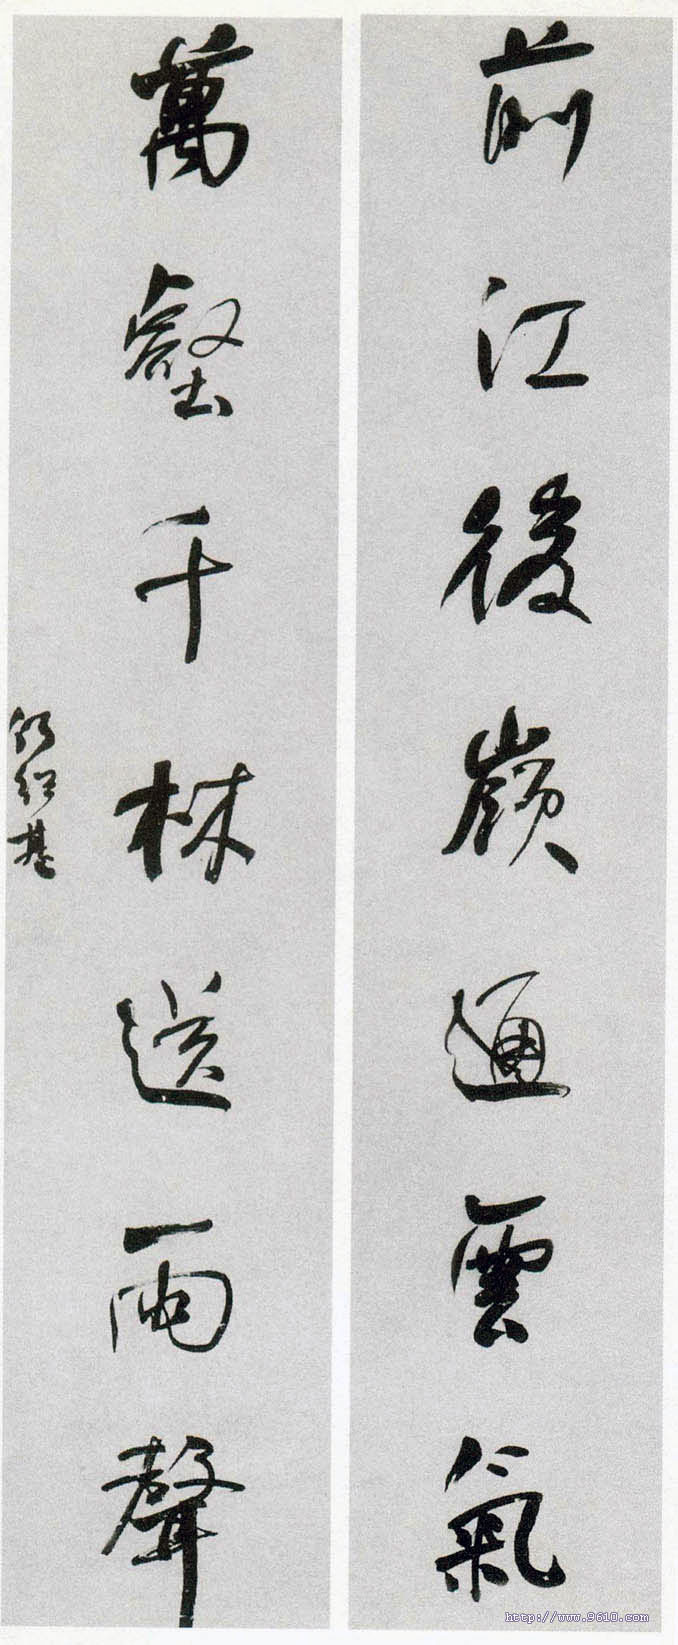 前江後嶺通雲氣
萬壑千林送雨聲
何紹基
http://www.9610.com